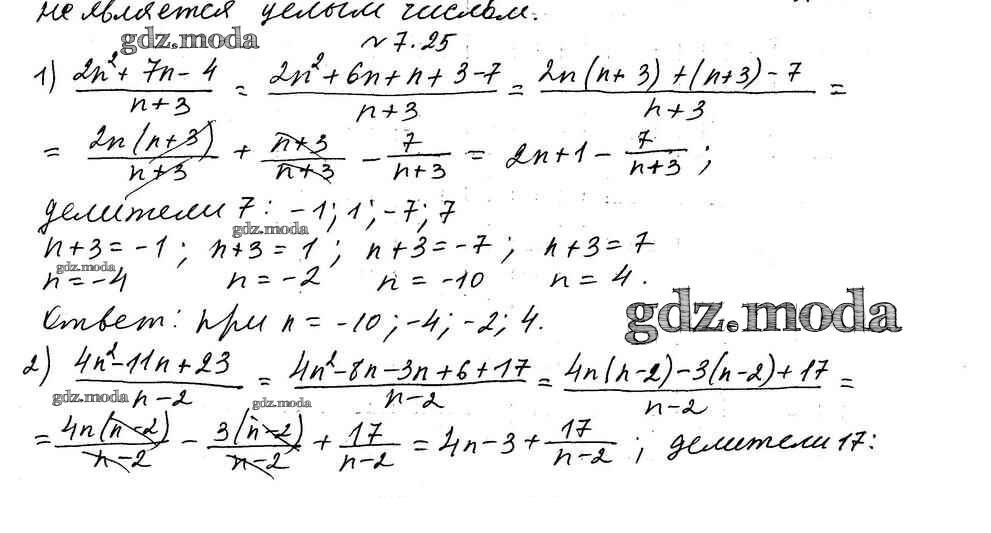 не является целым числом.
gdz.moda
№ 7.25
1) (2n² + 7n - 4)/(n + 3) = (2n² + 6n + n + 3 - 7)/(n + 3) = (2n(n + 3) + (n + 3) - 7)/(n + 3) =
= 2n(n + 3)/(n + 3) + (n + 3)/(n + 3) - 7/(n + 3) = 2n + 1 - 7/(n + 3) ;
делители 7 : -1; 1; -7; 7
gdz.moda
n + 3 = -1 ; n + 3 = 1 ; n + 3 = -7 ; n + 3 = 7
gdz.moda
n = -4 n = -2 n = -10 n = 4.
gdz.moda
Ответ: при n = -10; -4; -2; 4.
2) (4n² - 11n + 23)/(n - 2) = (4n² - 8n - 3n + 6 + 17)/(n - 2) = (4n(n - 2) - 3(n - 2) + 17)/(n - 2) =
gdz.moda gdz.moda
= 4n(n - 2)/(n - 2) - 3(n - 2)/(n - 2) + 17/(n - 2) = 4n - 3 + 17/(n - 2) ; делители 17: